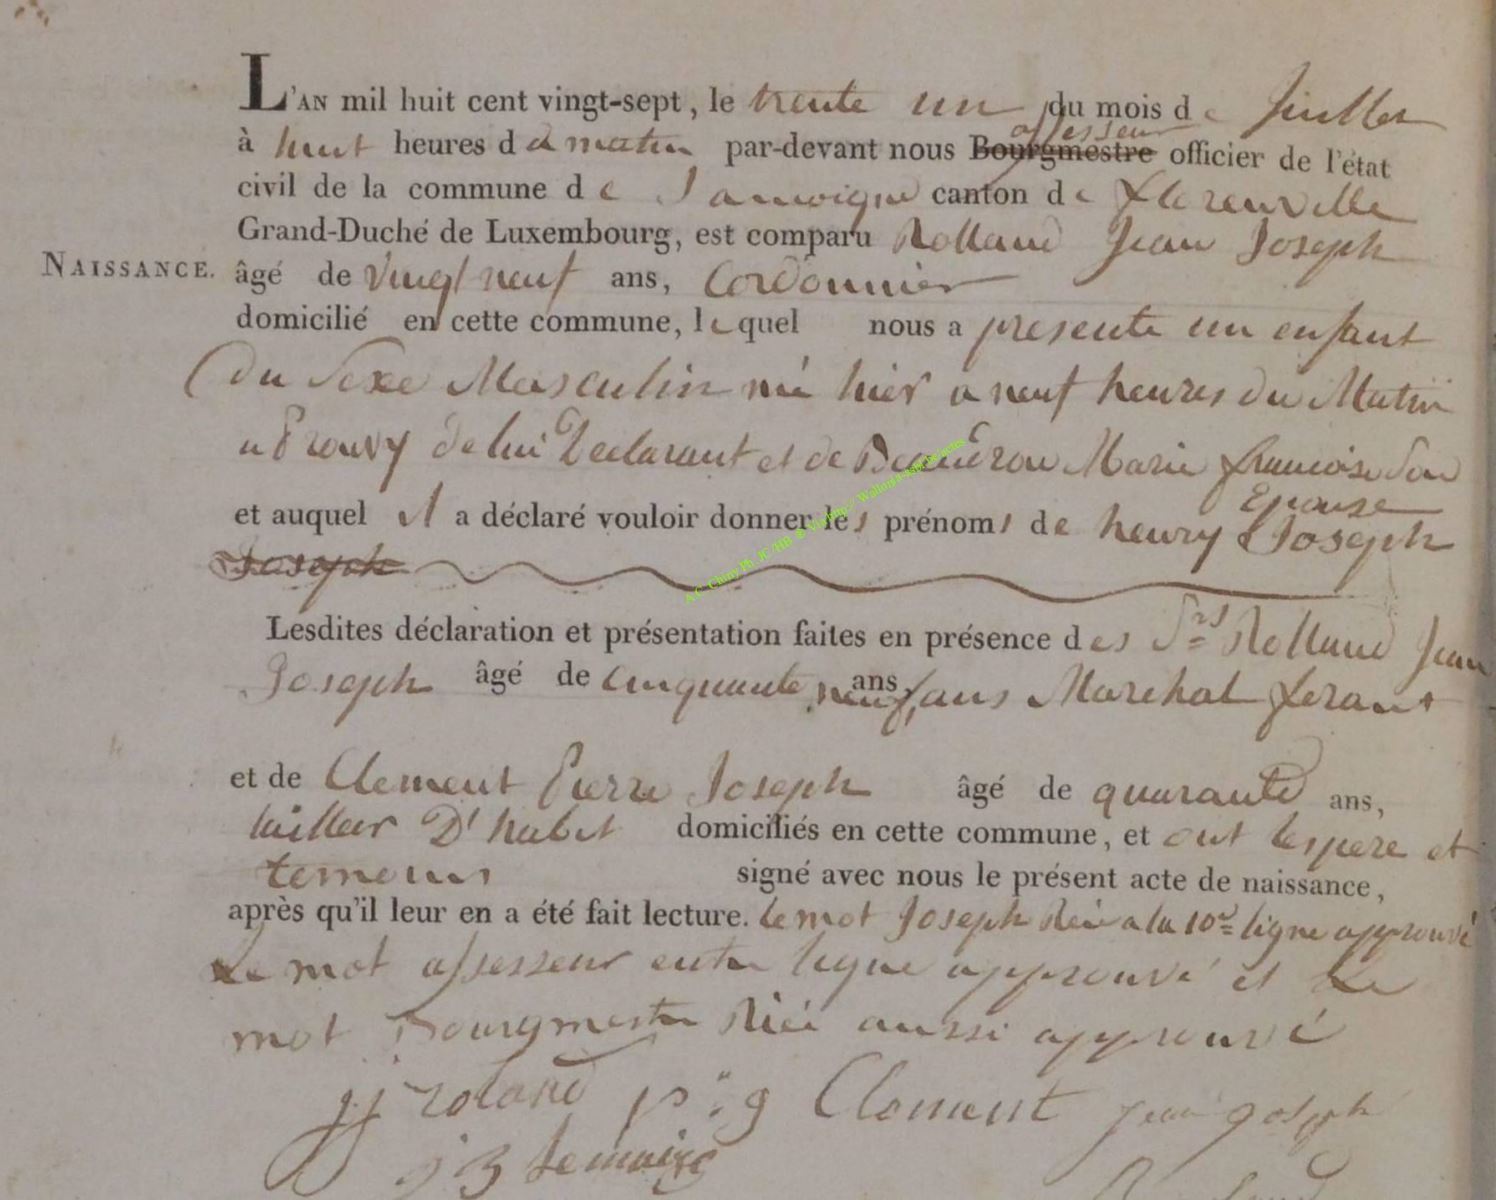 L'AN mil huit cent vingt-sept, le trente un du mois de Juillet
assesseur
à huit heures d a matin par-devant nous Bourgmestre officier de l'état
civil de la commune de Jamoigne canton de florenville
Grand-Duché de Luxembourg, est comparu Rolland Jean Joseph
NAISSANCE. âgé de vingt neuf ans, Cordonnier
domicilié en cette commune, lequel nous a presente un enfant
du Sexe Masculin né hier a neuf heures du Matin
a Prouvy de lui Declarant et de Marie francoise Son
Epouse
et auquel il a déclaré vouloir donner les prénoms de henry Joseph
Joseph
Lesdites déclaration et présentation faites en présence des Srs Rolland Jean
Joseph âgé de cinquante neuf ans, ans Marchal ferant
et de Clement Pierre Joseph âgé de quarante ans,
tailleur D'habit domiciliés en cette commune, et ont les pere et
temoins signé avec nous le présent acte de naissance,
après qu'il leur en a été fait lecture. Le mot Joseph Réié a la 10e ligne approuvé
Le mot assesseur entre ligne approuvé et Le
mot Bourgmestre Réié aussi approuvé
jj roland p: g Clement jean Joseph
j B Lemaire
A.C. Chiny Ph. JC/HB @ Virginton Wallonia-asbl.be/actes